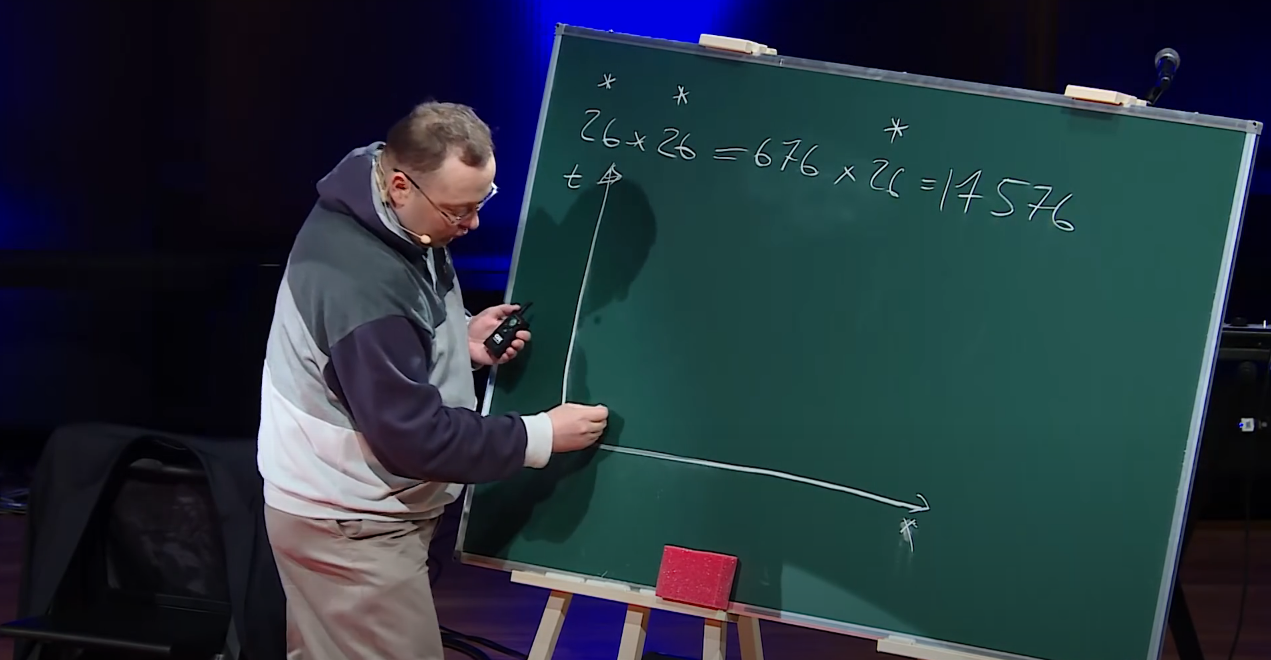 * * *
26 × 26 = 676 × 26 = 17 576
t
*